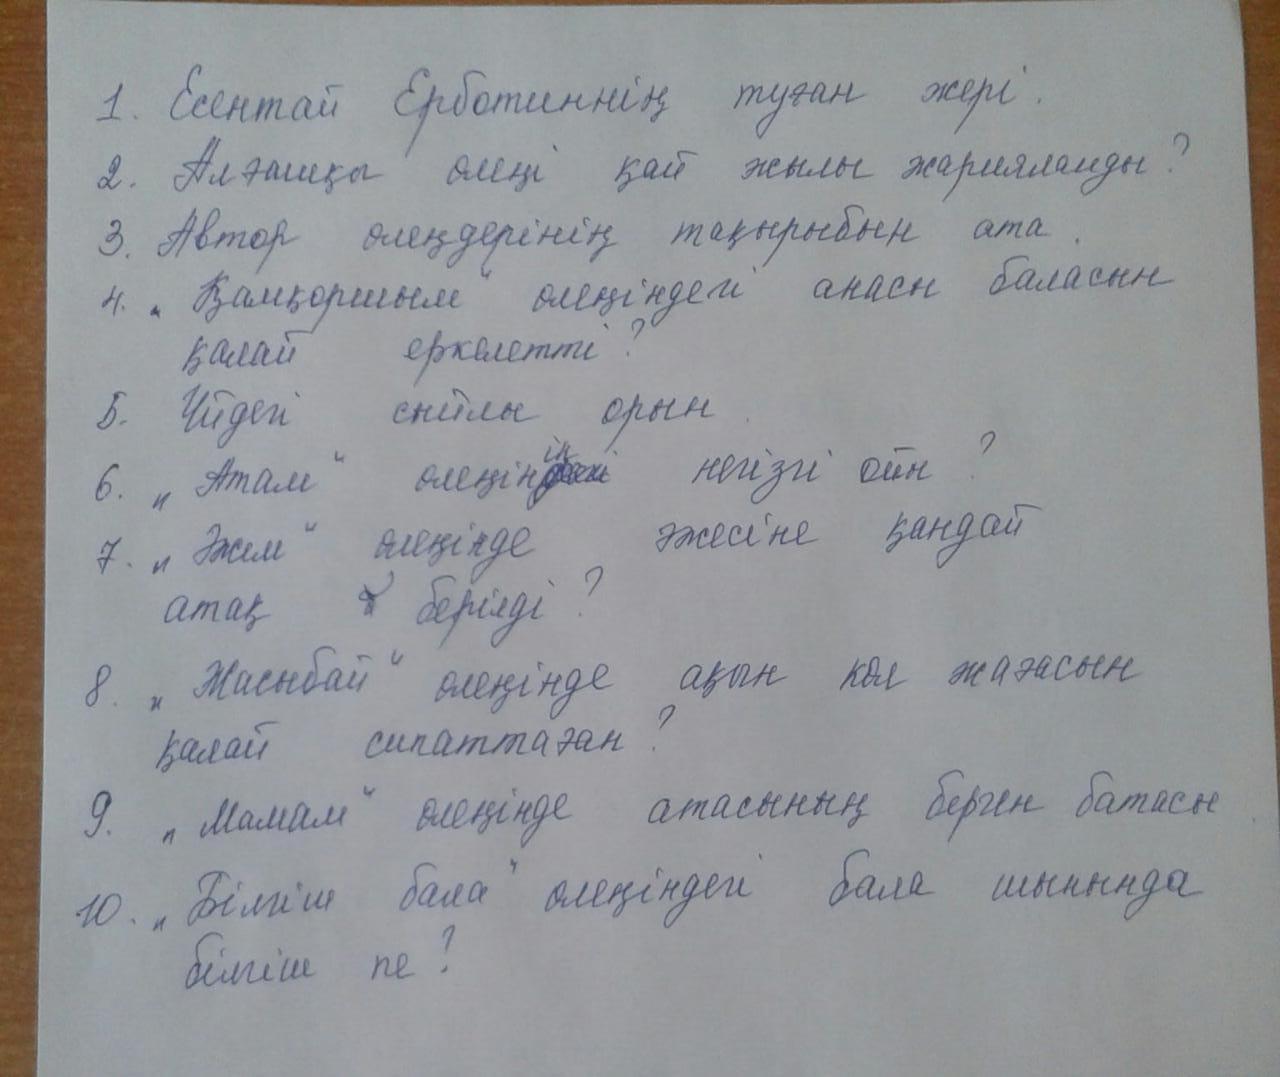 1. Есентай Ерботиннің туған жері.
2. Алғашқы өлеңі қай жылы жарияланды?
3. Автор өлеңдерінің тақырыбын ата.
4. „Қамқоршым“ өлеңіндегі анасы баласын
қалай еркелетті?
5. Үйдегі сыйлы орын.
6. „Атам“ өлеңінің негізгі ойы?
7. „Әжем“ өлеңінде әжесіне қандай
атақ берілді?
8. „Жасыбай“ өлеңінде ақын көл жағасын
қалай сипаттаған?
9. „Мамам“ өлеңінде атасының берген батасы
10. „Білгіш бала“ өлеңіндегі бала шынында
білгіш пе?